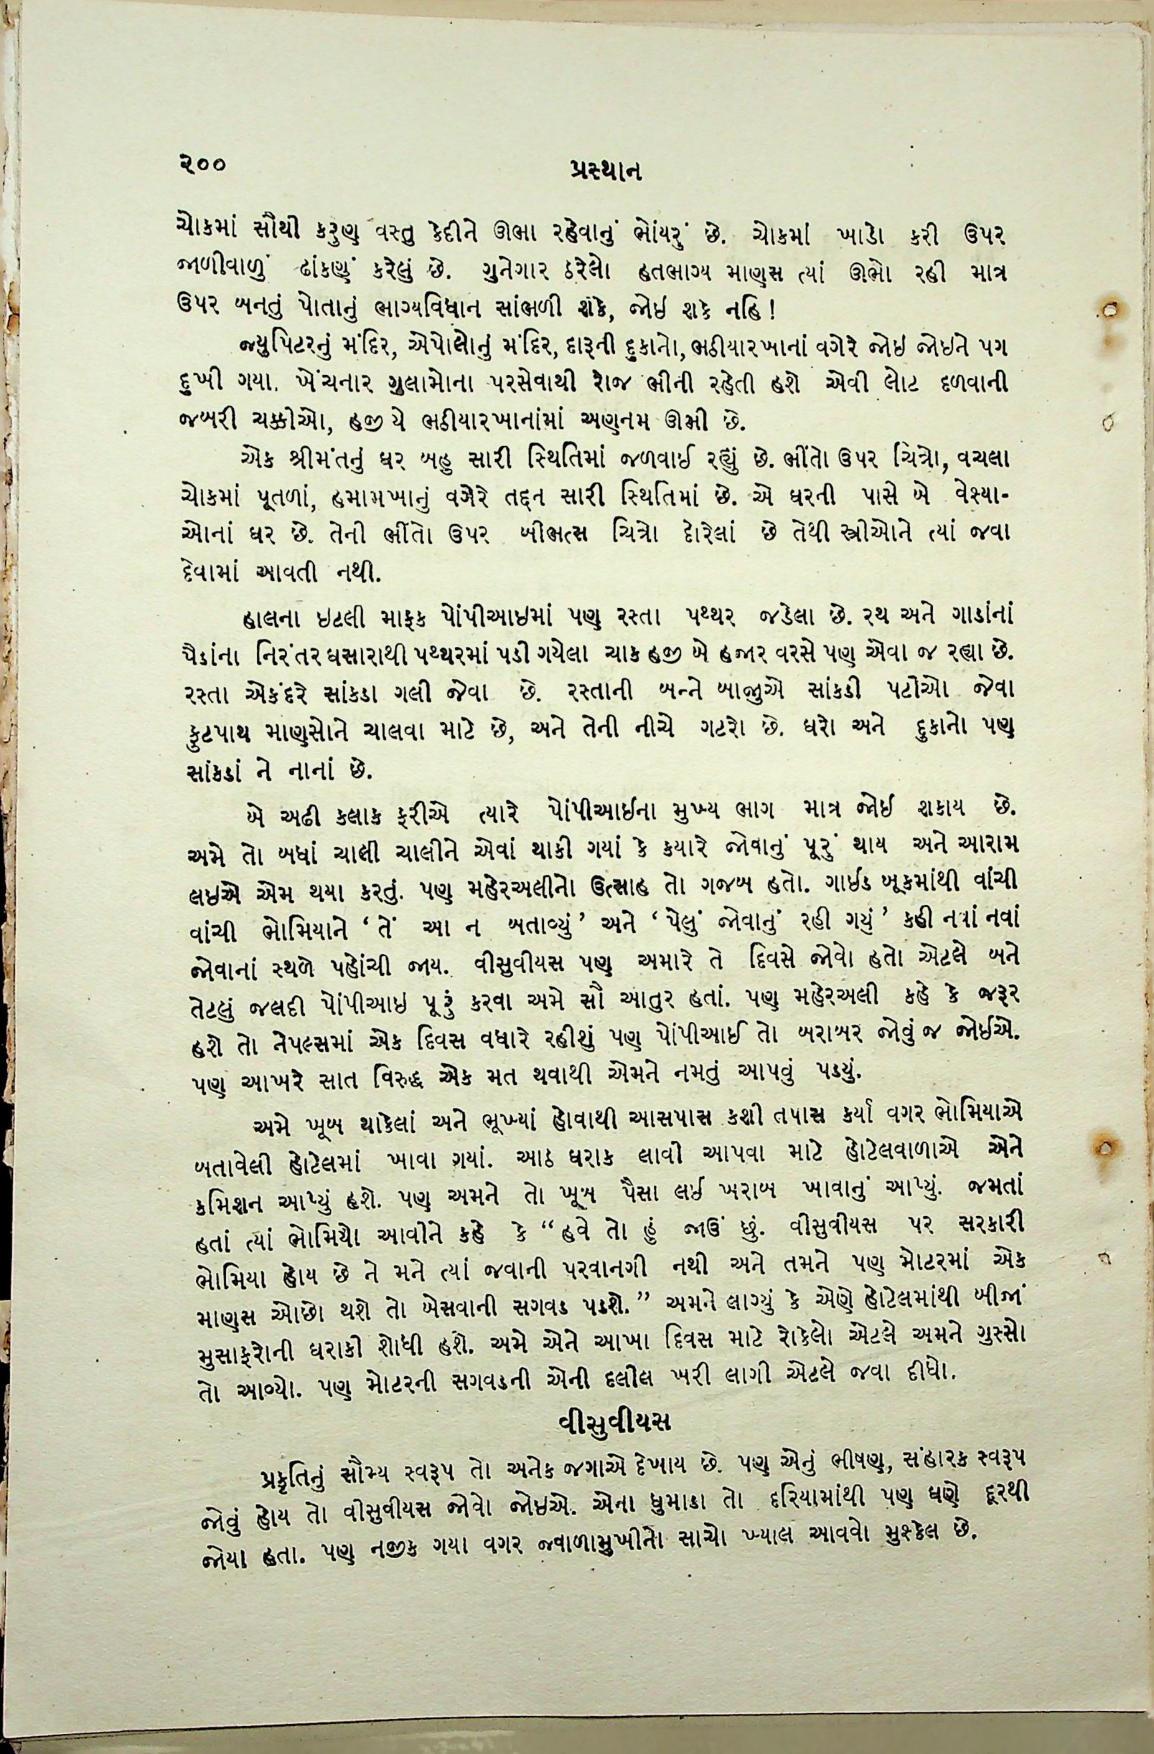 ૨૦૦
પ્રસ્થાન
ચોકમાં સૌથી કરુણ વસ્તુ કેદીને ઊભા રહેવાનું ભોંયરું છે. ચોકમાં ખાડો કરી ઉપર
જાળીવાળું ઢાંકણું કરેલું છે. ગુનેગાર ઠરેલો હતભાગ્ય માણસ ત્યાં ઊભો રહી માત્ર
ઉપર બનતું પોતાનું ભાગ્યવિધાન સાંભળી શકે, જોઇ શકે નહિ!
જ્યુપિટરનું મંદિર, એપોલોનું મંદિર, દારૂની દુકાનો, ભઠીયારખાનાં વગેરે જોઇ જોઇને પગ
દુખી ગયા. ખેંચનાર ગુલામોના પરસેવાથી રોજ ભીની રહેતી હશે એવી લોટ દળવાની
જબરી ચક્કીઓ, હજી યે ભઠીયારખાનાંમાં અણનમ ઊભી છે.
એક શ્રીમંતનું ઘર બહુ સારી સ્થિતિમાં જળવાઈ રહ્યું છે. ભીંતો ઉપર ચિત્રો, વચલા
ચોકમાં પૂતળાં, હમામખાનું વગેરે તદ્દન સારી સ્થિતિમાં છે. એ ઘરની પાસે બે વેશ્યા-
ઓનાં ઘર છે. તેની ભીંતો ઉપર બીભત્સ ચિત્રો દોરેલાં છે તેથી સ્ત્રીઓને ત્યાં જવા
દેવામાં આવતી નથી.
હાલના ઇટલી માફક પોંપીઆઇમાં પણ રસ્તા પથ્થર જડેલા છે. રથ અને ગાડાંનાં
પૈડાંના નિરંતર ઘસારાથી પથ્થરમાં પડી ગયેલા ચાક હજી બે હજાર વરસે પણ એવા જ રહ્યા છે.
રસ્તા એકંદરે સાંકડા ગલી જેવા છે. રસ્તાની બન્ને બાજુએ સાંકડી પટીઓ જેવા
ફુટપાથ માણસોને ચાલવા માટે છે, અને તેની નીચે ગટરો છે. ઘરો અને દુકાનો પણ
સાંકડાં ને નાનાં છે.
બે અઢી કલાક ફરીએ ત્યારે પોંપીઆઈના મુખ્ય ભાગ માત્ર જોઈ શકાય છે.
અમે તો બધાં ચાલી ચાલીને એવાં થાકી ગયાં કે કયારે જોવાનું પૂરું થાય અને આરામ
લઇએ એમ થયા કરતું. પણ મહેરઅલીનો ઉત્સાહ તો ગજબ હતો. ગાઈડ બૂકમાંથી વાંચી
વાંચી ભોમિયાને ‘તેં આ ન બતાવ્યું’ અને ‘પેલું જોવાનું રહી ગયું’ કહી નવાં નવાં
જોવાનાં સ્થળે પહોંચી જાય. વીસુવીયસ પણ અમારે તે દિવસે જોવો હતો એટલે બને
તેટલું જલદી પોંપીઆઇ પૂરું કરવા અમે સૌ આતુર હતાં. પણ મહેરઅલી કહે કે જરૂર
હશે તો નેપલ્સમાં એક દિવસ વધારે રહીશું પણ પોંપીઆઈ તો બરાબર જોવું જ જોઈએ.
પણ આખરે સાત વિરુદ્ધ એક મત થવાથી એમને નમતું આપવું પડયું.
અમે ખૂબ થાકેલાં અને ભૂખ્યાં હોવાથી આસપાસ કશી તપાસ કર્યા વગર ભોમિયાએ
બતાવેલી હોટેલમાં ખાવા ગયાં. આઠ ઘરાક લાવી આપવા માટે હોટેલવાળાએ એને
કમિશન આપ્યું હશે. પણ અમને તો ખૂબ પૈસા લઇ ખરાબ ખાવાનું આપ્યું. જમતાં
હતાં ત્યાં ભોમિયો આવીને કહે કે “હવે તો હું જાઉં છું. વીસુવીયસ પર સરકારી
ભોમિયા હોય છે ને મને ત્યાં જવાની પરવાનગી નથી અને તમને પણ મોટરમાં એક
માણસ ઓછો થશે તો બેસવાની સગવડ પડશે.” અમને લાગ્યું કે એણે હોટેલમાંથી બીજાં
મુસાફરોની ઘરાકી શોધી હશે. અમે એને આખા દિવસ માટે રોકેલો એટલે અમને ગુસ્સો
તો આવ્યો. પણ મોટરની સગવડની એની દલીલ ખરી લાગી એટલે જવા દીધો.
વીસુવીયસ
પ્રકૃતિનું સૌમ્ય સ્વરૂપ તો અનેક જગાએ દેખાય છે. પણ એનું ભીષણ, સંહારક સ્વરૂપ
જોવું હોય તો વીસુવીયસ જોવો જોઇએ. એના ધુમાડા તો દરિયામાંથી પણ ઘણે દૂરથી
જોયા હતા. પણ નજીક ગયા વગર જ્વાળામુખીનો સાચો ખ્યાલ આવવો મુશ્કેલ છે.